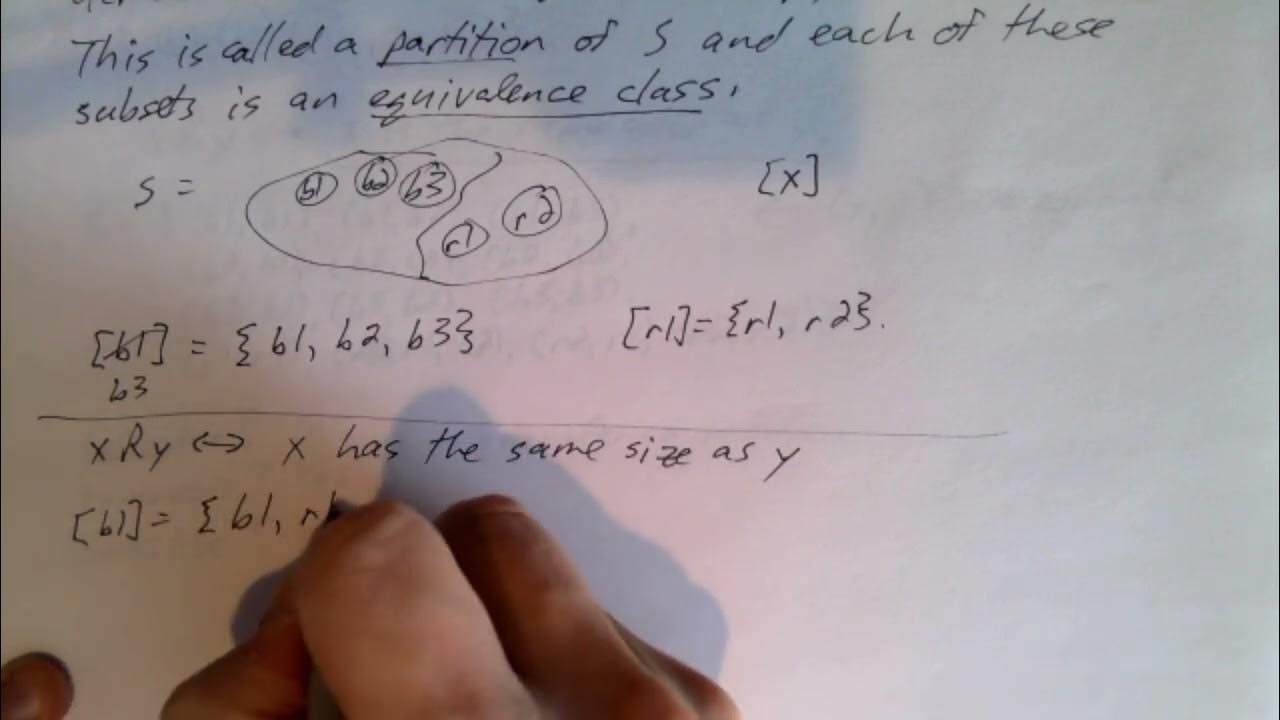 This is called a partition of S and each of these
subsets is an equivalence class.
S =
b1 b2 b3
r1 r2
[x]
[b1] = {b1, b2, b3} [r1] = {r1, r2}.
b3
xRy ↔ x has the same size as y
[b1] = {b1, r1